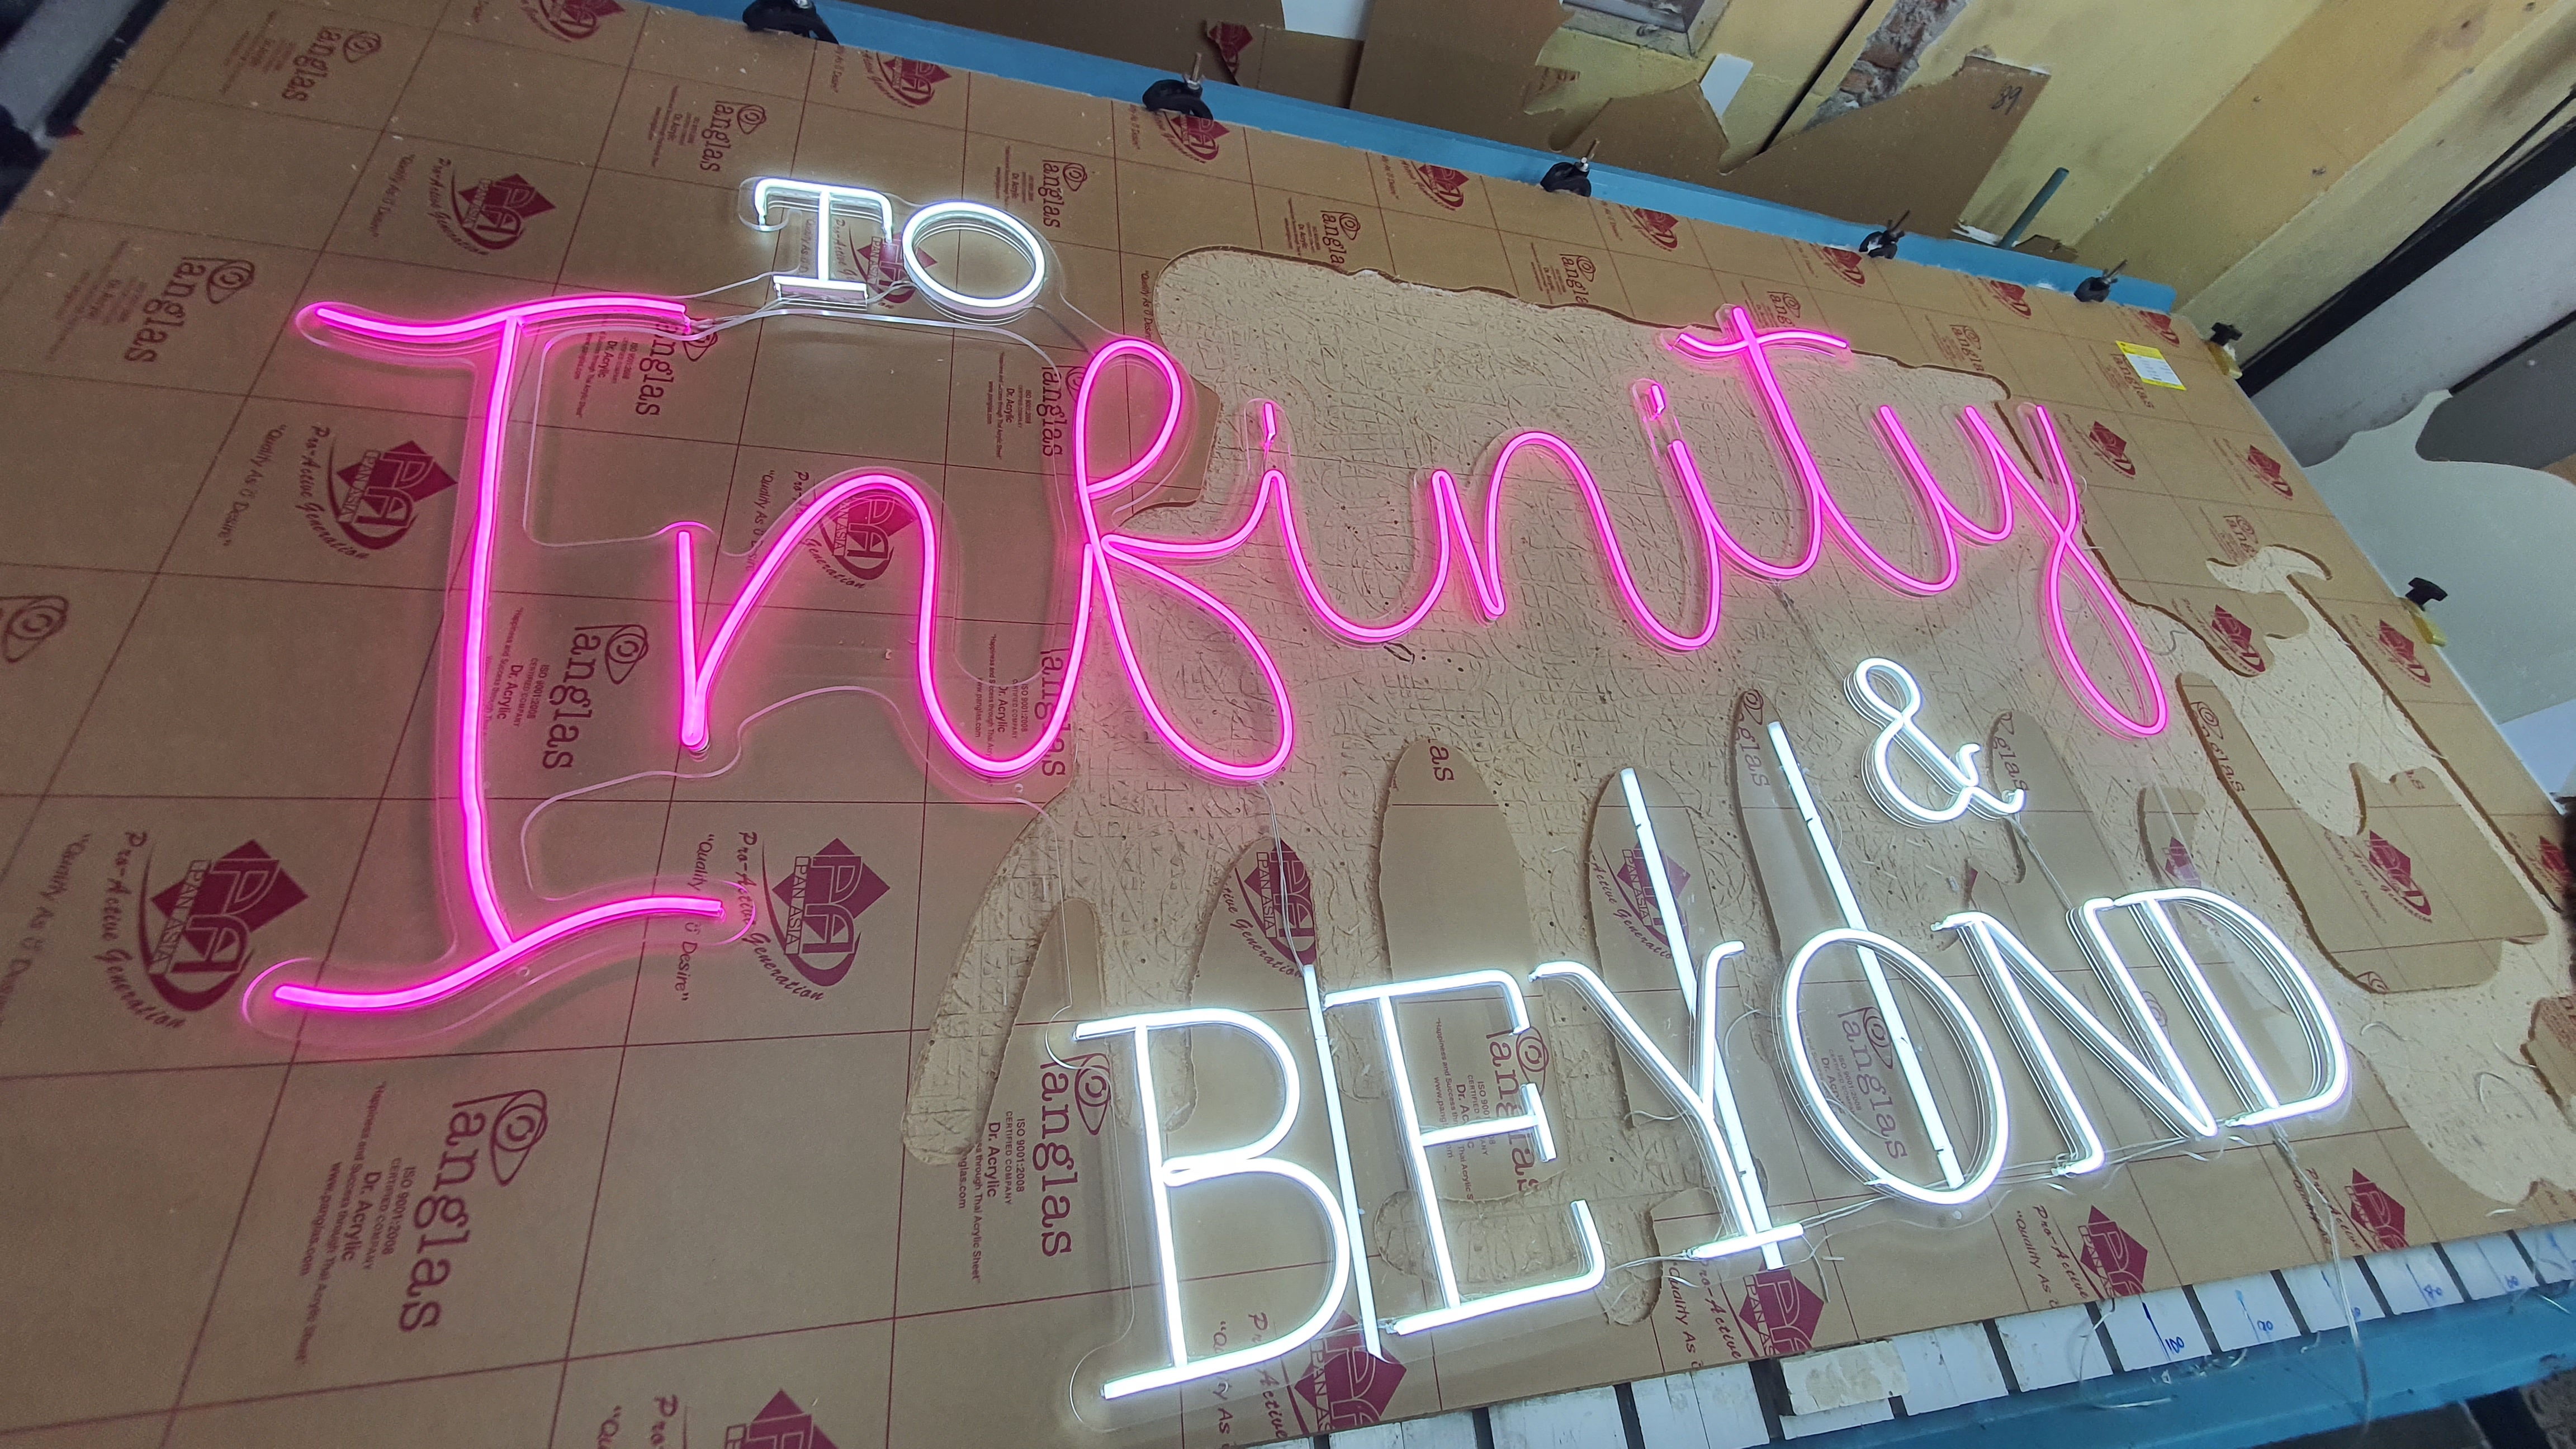 TO
Infinity
&
BEYOND
Panglas
ISO 9001:2008
CERTIFIED COMPANY
Dr. Acrylic
"Happiness and Success through Thai Acrylic Sheet"
www.panglas.com
PAN ASIA
Pro-Active Generation
"Quality As U Desire"
89
100